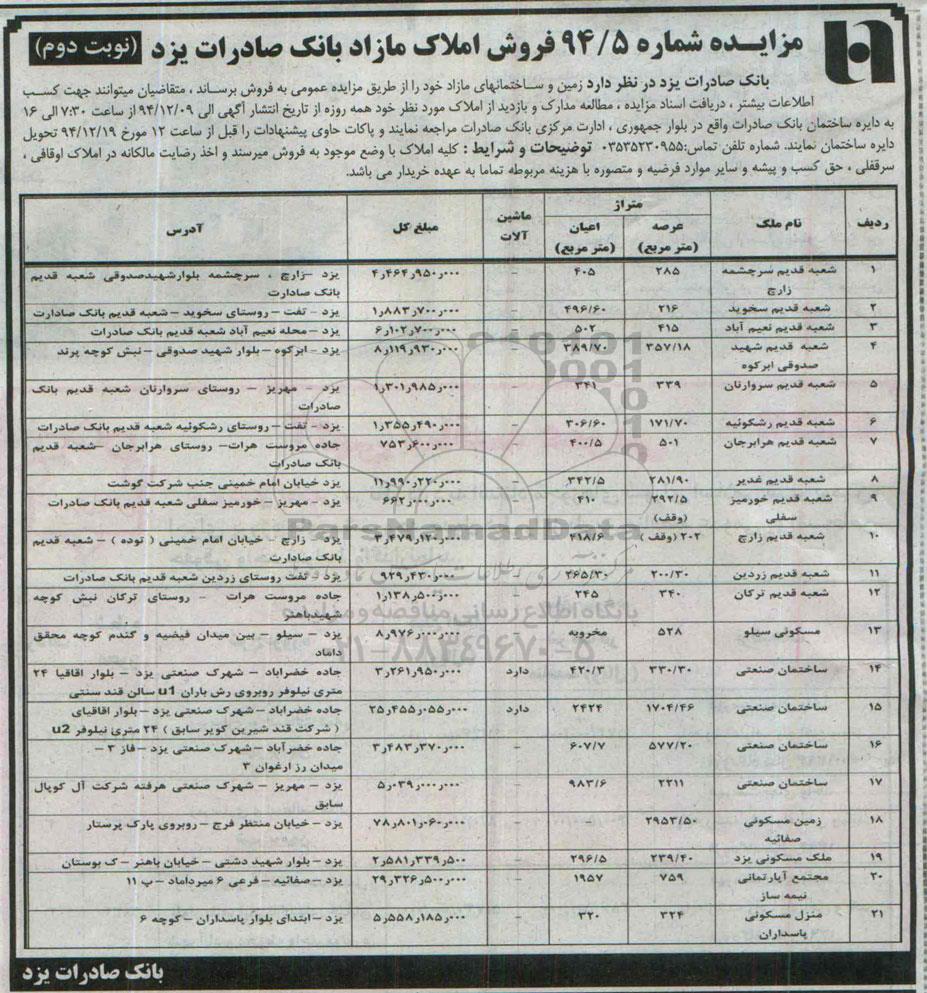 مزایده شماره ۹۴/۵ فروش املاک مازاد بانک صادرات یزد (نوبت دوم)
بانک صادرات یزد در نظر دارد زمین و ساختمانهای مازاد خود را از طریق مزایده عمومی به فروش برساند ، متقاضیان میتوانند جهت کسب
اطلاعات بیشتر ، دریافت اسناد مزایده ، مطالعه مدارک و بازدید از املاک مورد نظر خود همه روزه از تاریخ انتشار آگهی الی ۹۴/۱۲/۰۹ از ساعت ۷:۳۰ الی ۱۶
به دایره ساختمان بانک صادرات واقع در بلوار جمهوری ، ادارت مرکزی بانک صادرات مراجعه نمایند و پاکات حاوی پیشنهادات را قبل از ساعت ۱۲ مورخ ۹۴/۱۲/۱۹ تحویل
دایره ساختمان نمایند. شماره تلفن تماس:۰۳۵۳۵۲۳۰۹۵۵ توضیحات و شرایط : کلیه املاک با وضع موجود به فروش میرسند و اخذ رضایت مالکانه در املاک اوقافی ،
سرقفلی ، حق کسب و پیشه و سایر موارد فرضیه و متصوره با هزینه مربوطه تماما به عهده خریدار می باشد.
ردیف نام ملک متراژ ماشین آلات مبلغ کل آدرس
عرصه (متر مربع) اعیان (متر مربع)
۱ شعبه قدیم سرچشمه ۲۸۵ ۴۰۵ - ۴٫۴۶۴٫۹۵۰٫۰۰۰ یزد -زارچ ، سرچشمه بلوارشهیدصدوقی شعبه قدیم
زارچ بانک صادارت
۲ شعبه قدیم سخوید ۲۱۶ ۴۹۶/۶۰ - ۱٫۸۸۳٫۷۰۰٫۰۰۰ یزد - تفت - روستای سخوید - شعبه قدیم بانک صادارت
۳ شعبه قدیم نعیم آباد ۴۱۵ ۵۰۲ - ۶٫۱۰۲٫۷۰۰٫۰۰۰ یزد - محله نعیم آباد شعبه قدیم بانک صادرات
۴ شعبه قدیم شهید ۳۵۷/۱۸ ۳۸۹/۷۰ - ۸٫۱۱۹٫۹۳۰٫۰۰۰ یزد - ابرکوه - بلوار شهید صدوقی - نبش کوچه پرند
صدوقی ابرکوه
۵ شعبه قدیم سروارتان ۳۳۹ ۳۴۱ - ۱٫۳۰۱٫۹۸۵٫۰۰۰ یزد - مهریز - روستای سروارتان شعبه قدیم بانک
صادرات
۶ شعبه قدیم رشکوئیه ۱۷۱/۷۰ ۳۰۶/۶۰ - ۱٫۳۵۵٫۴۹۰٫۰۰۰ یزد - تفت - روستای رشکوئیه شعبه قدیم بانک صادرات
۷ شعبه قدیم هرابرجان ۵۰۱ ۴۰۰/۵ - ۷۵۳٫۶۰۰٫۰۰۰ جاده مروست هرات- روستای هرابرجان -شعبه قدیم
بانک صادرات
۸ شعبه قدیم غدیر ۲۸۱/۹۰ ۳۴۲/۵ - ۱۱٫۹۹۰٫۲۲۰٫۰۰۰ یزد خیابان امام خمینی جنب شرکت گوشت
۹ شعبه قدیم خورمیز ۲۹۲/۵ ۴۱۰ - ۶۶۲٫۰۰۰٫۰۰۰ یزد - مهریز - خورمیز سفلی شعبه قدیم بانک صادرات
سفلی (وقف)
۱۰ شعبه قدیم زارچ ۲۰۲ (وقف) ۴۱۸/۶ - ۳٫۴۷۹٫۱۲۰٫۰۰۰ یزد - زارچ - خیابان امام خمینی ( توده ) - شعبه قدیم
بانک صادارت
۱۱ شعبه قدیم زردین ۲۰۰/۳۰ ۲۶۵/۳۰ - ۹۲۹٫۴۳۰٫۰۰۰ یزد - تفت روستای زردین شعبه قدیم بانک صادرات
۱۲ شعبه قدیم ترکان ۳۴۰ ۲۴۵ - ۱٫۱۳۸٫۵۰۰٫۰۰۰ جاده مروست هرات - روستای ترکان نبش کوچه
شهیدباهنر
۱۳ مسکونی سیلو ۵۲۸ مخروبه - ۸٫۹۷۶٫۰۰۰٫۰۰۰ یزد - سیلو - بین میدان فیضیه و گندم کوچه محقق
داماد
۱۴ ساختمان صنعتی ۳۳۰/۳۰ ۴۲۰/۳ دارد ۳٫۲۶۱٫۹۵۰٫۰۰۰ جاده خضراباد - شهرک صنعتی یزد - بلوار اقاقیا ۲۴
متری نیلوفر روبروی رش باران u1 سالن قند سنتی
۱۵ ساختمان صنعتی ۱۷۰۴/۴۶ ۲۴۲۴ دارد ۲۵٫۴۵۵٫۰۵۵٫۰۰۰ جاده خضراباد - شهرک صنعتی یزد - بلوار اقاقیای
( شرکت قند شیرین کویر سابق ) ۲۴ متری نیلوفر u2
۱۶ ساختمان صنعتی ۵۷۷/۲۰ ۶۰۷/۷ - ۳٫۴۸۳٫۳۷۰٫۰۰۰ جاده خضرآباد - شهرک صنعتی یزد - فاز ۳ -
میدان رز ارغوان ۳
۱۷ ساختمان صنعتی ۲۲۱۱ ۹۸۳/۶ - ۵٫۰۳۹٫۰۰۰٫۰۰۰ یزد - مهریز - شهرک صنعتی هرفته شرکت آل کوپال
سابق
۱۸ زمین مسکونی ۲۹۵۳/۵۰ - - ۷۸٫۸۰۱٫۰۶۰٫۰۰۰ یزد - خیابان منتظر فرج - روبروی پارک پرستار
صفائیه
۱۹ ملک مسکونی یزد ۲۳۹/۴۰ ۲۹۶/۵ - ۲٫۵۸۱٫۳۳۹٫۵۰۰ یزد - بلوار شهید دشتی - خیابان باهنر - ک بوستان
۲۰ مجتمع آپارتمانی ۷۵۹ ۱۹۵۷ - ۲۹٫۳۲۶٫۵۰۰٫۰۰۰ یزد - صفائیه - فرعی ۶ میرداماد - پ ۱۱
نیمه ساز
۲۱ منزل مسکونی ۳۲۴ ۳۲۰ - ۵٫۵۵۸٫۱۸۵٫۰۰۰ یزد - ابتدای بلوار پاسداران - کوچه ۶
پاسداران
بانک صادرات یزد
ParsNamadData
پایگاه اطلاع رسانی مناقصه و مزایده
۰۲۱-۸۸۳۴۹۶۷۰-۵